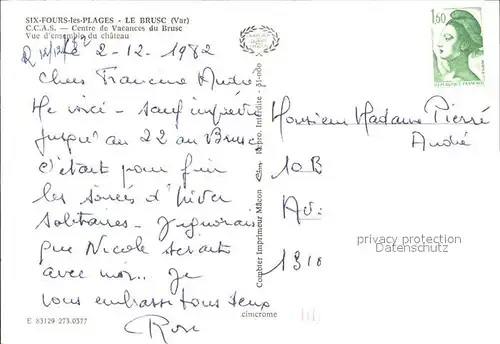 SIX-FOURS-les-PLAGES - LE BRUSC (Var)
C.C.A.S. — Centre de Vacances du Brusc
Vue d'ensemble du château
R 12/12/82
le 2-12-1982
Chers Francine André
Me voici - sauf imprévu
jusqu'au 22 au Brusc
c'était pour fuir
les soirées d'hiver
solitaires - J'ignorais
que Nicole serait
avec moi.. Je
vous embrasse tous deux
Rose
E 83129 273.0377
Combier Imprimeur Mâcon
Repro. Interdite
cimcrome
1,60
REPUBLIQUE FRANCAISE
Monsieur Madame Pierré
André
10 B
Av:
1310
privacy protection
Datenschutz